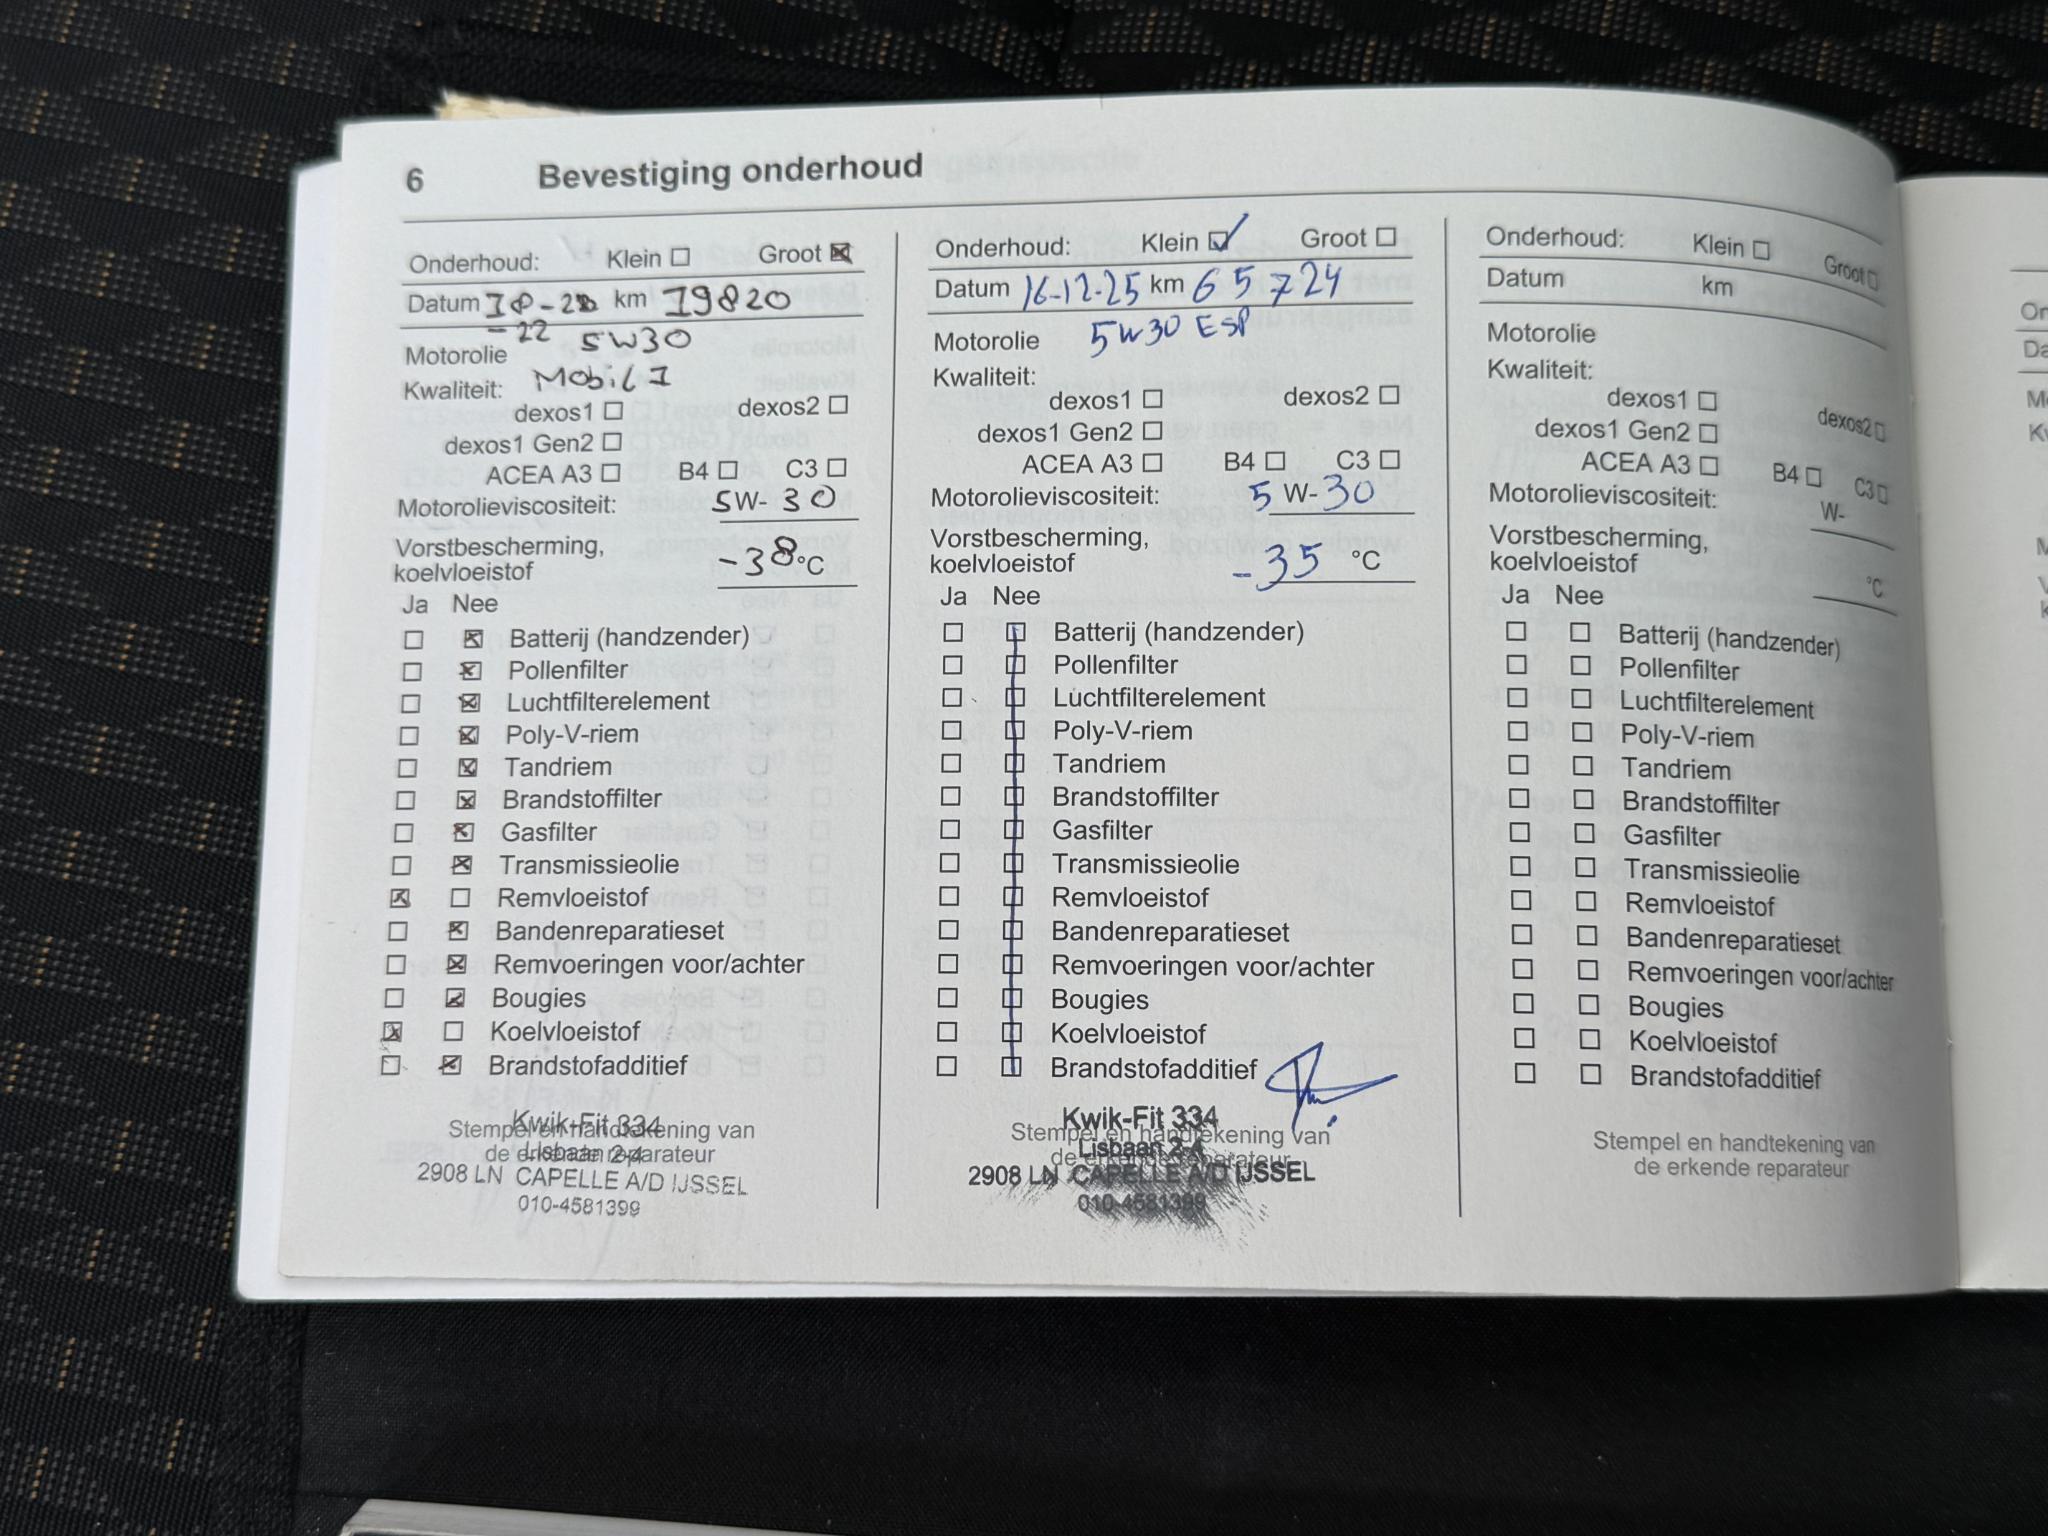 6 Bevestiging onderhoud
Onderhoud: Klein Groot
Datum km 19820
-22
Motorolie 5W30
Kwaliteit: Mobil 1
dexos1 dexos2
dexos1 Gen2
ACEA A3 B4 C3
Motorolieviscositeit: 5W-30
Vorstbescherming,
koelvloeistof -38°C
Ja Nee
Batterij (handzender)
Pollenfilter
Luchtfilterelement
Poly-V-riem
Tandriem
Brandstoffilter
Gasfilter
Transmissieolie
Remvloeistof
Bandenreparatieset
Remvoeringen voor/achter
Bougies
Koelvloeistof
Brandstofadditief
Kwik-Fit 334
Stempel en handtekening van
Lisbaan 2-4
de erkende reparateur
2908 LN CAPELLE A/D IJSSEL
010-4581399
Onderhoud: Klein Groot
Datum 16-12-25 km 65724
Motorolie 5W30 ESP
Kwaliteit:
dexos1 dexos2
dexos1 Gen2
ACEA A3 B4 C3
Motorolieviscositeit: 5 W-30
Vorstbescherming,
koelvloeistof -35 °C
Ja Nee
Batterij (handzender)
Pollenfilter
Luchtfilterelement
Poly-V-riem
Tandriem
Brandstoffilter
Gasfilter
Transmissieolie
Remvloeistof
Bandenreparatieset
Remvoeringen voor/achter
Bougies
Koelvloeistof
Brandstofadditief
Kwik-Fit 334
Stempel en handtekening van
Lisbaan 2-4
de erkende reparateur
2908 LN CAPELLE A/D IJSSEL
010-4581399
Onderhoud: Klein Groot
Datum km
Motorolie
Kwaliteit:
dexos1 dexos2
dexos1 Gen2
ACEA A3 B4 C3
Motorolieviscositeit: W-
Vorstbescherming,
koelvloeistof °C
Ja Nee
Batterij (handzender)
Pollenfilter
Luchtfilterelement
Poly-V-riem
Tandriem
Brandstoffilter
Gasfilter
Transmissieolie
Remvloeistof
Bandenreparatieset
Remvoeringen voor/achter
Bougies
Koelvloeistof
Brandstofadditief
Stempel en handtekening van
de erkende reparateur